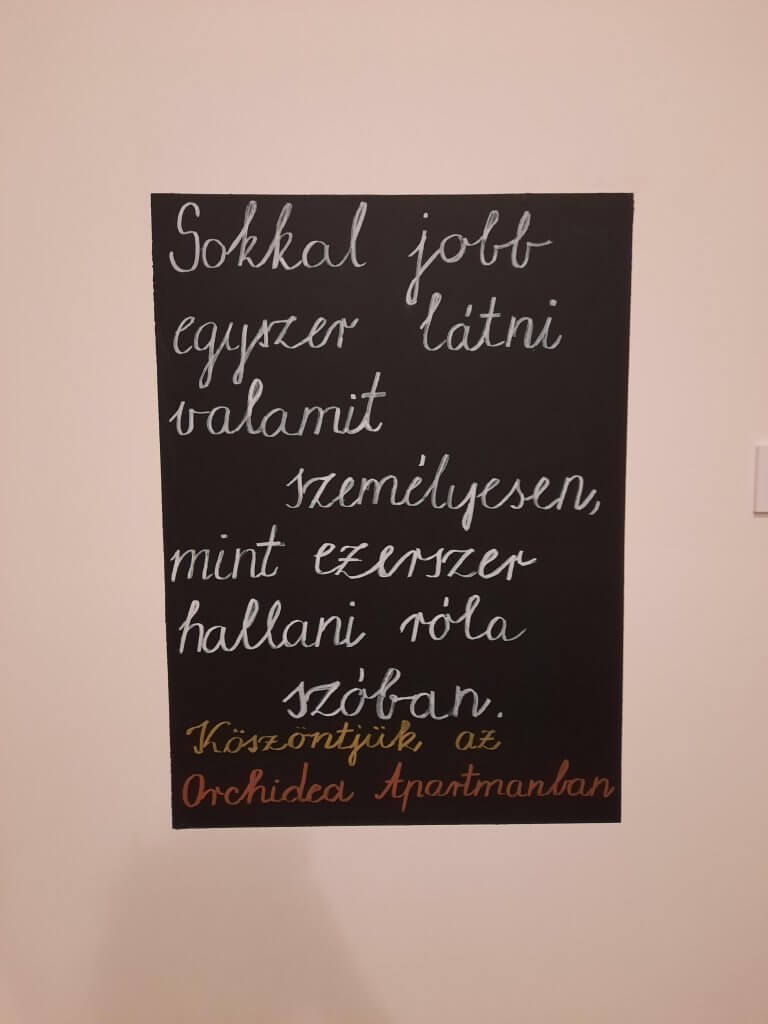 Sokkal jobb
egyszer látni
valamit
személyesen,
mint ezerszer
hallani róla
szóban.
Köszöntjük az
Orchidea Apartmanban